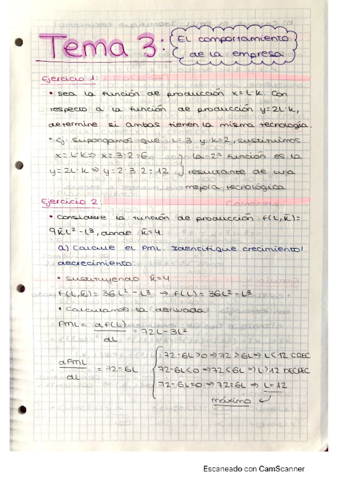 Tema 3: El comportamiento de la empresa
Ejercicio 1:
• Sea la función de producción x=L·K. Con
respecto a la función de producción y=2L·K,
determine si ambas tienen la misma tecnología
• Ej: Supongamos que L=3 y K=2, sustituimos
x=L·K⇒ x=3·2=6. ¿ la 2ª función es la
y=2L·K ⇒ y=2·3·2=12 resultante de una
mejora tecnológica
Ejercicio 2:
• Considere la función de producción F(L,K̄)=
9K̄L²-L³, donde K̄=4.
a) Calcule el PML. Identifique crecimiento/
decrecimiento
• Sustituyendo K̄=4
F(L,K̄)= 36L²-L³ → F(L)= 36L²-L³
• Calculamos la derivada
PML= dF(L)/dL = 72L-3L²
dPML/dL = 72-6L
72-6L>0 ⇒ 72>6L ⇒ L<12 CREC
72-6L<0 ⇒ 72<6L ⇒ L>12 DECREC
72-6L=0 ⇒ 72=6L ⇒ L=12
máximo
Escaneado con CamScanner